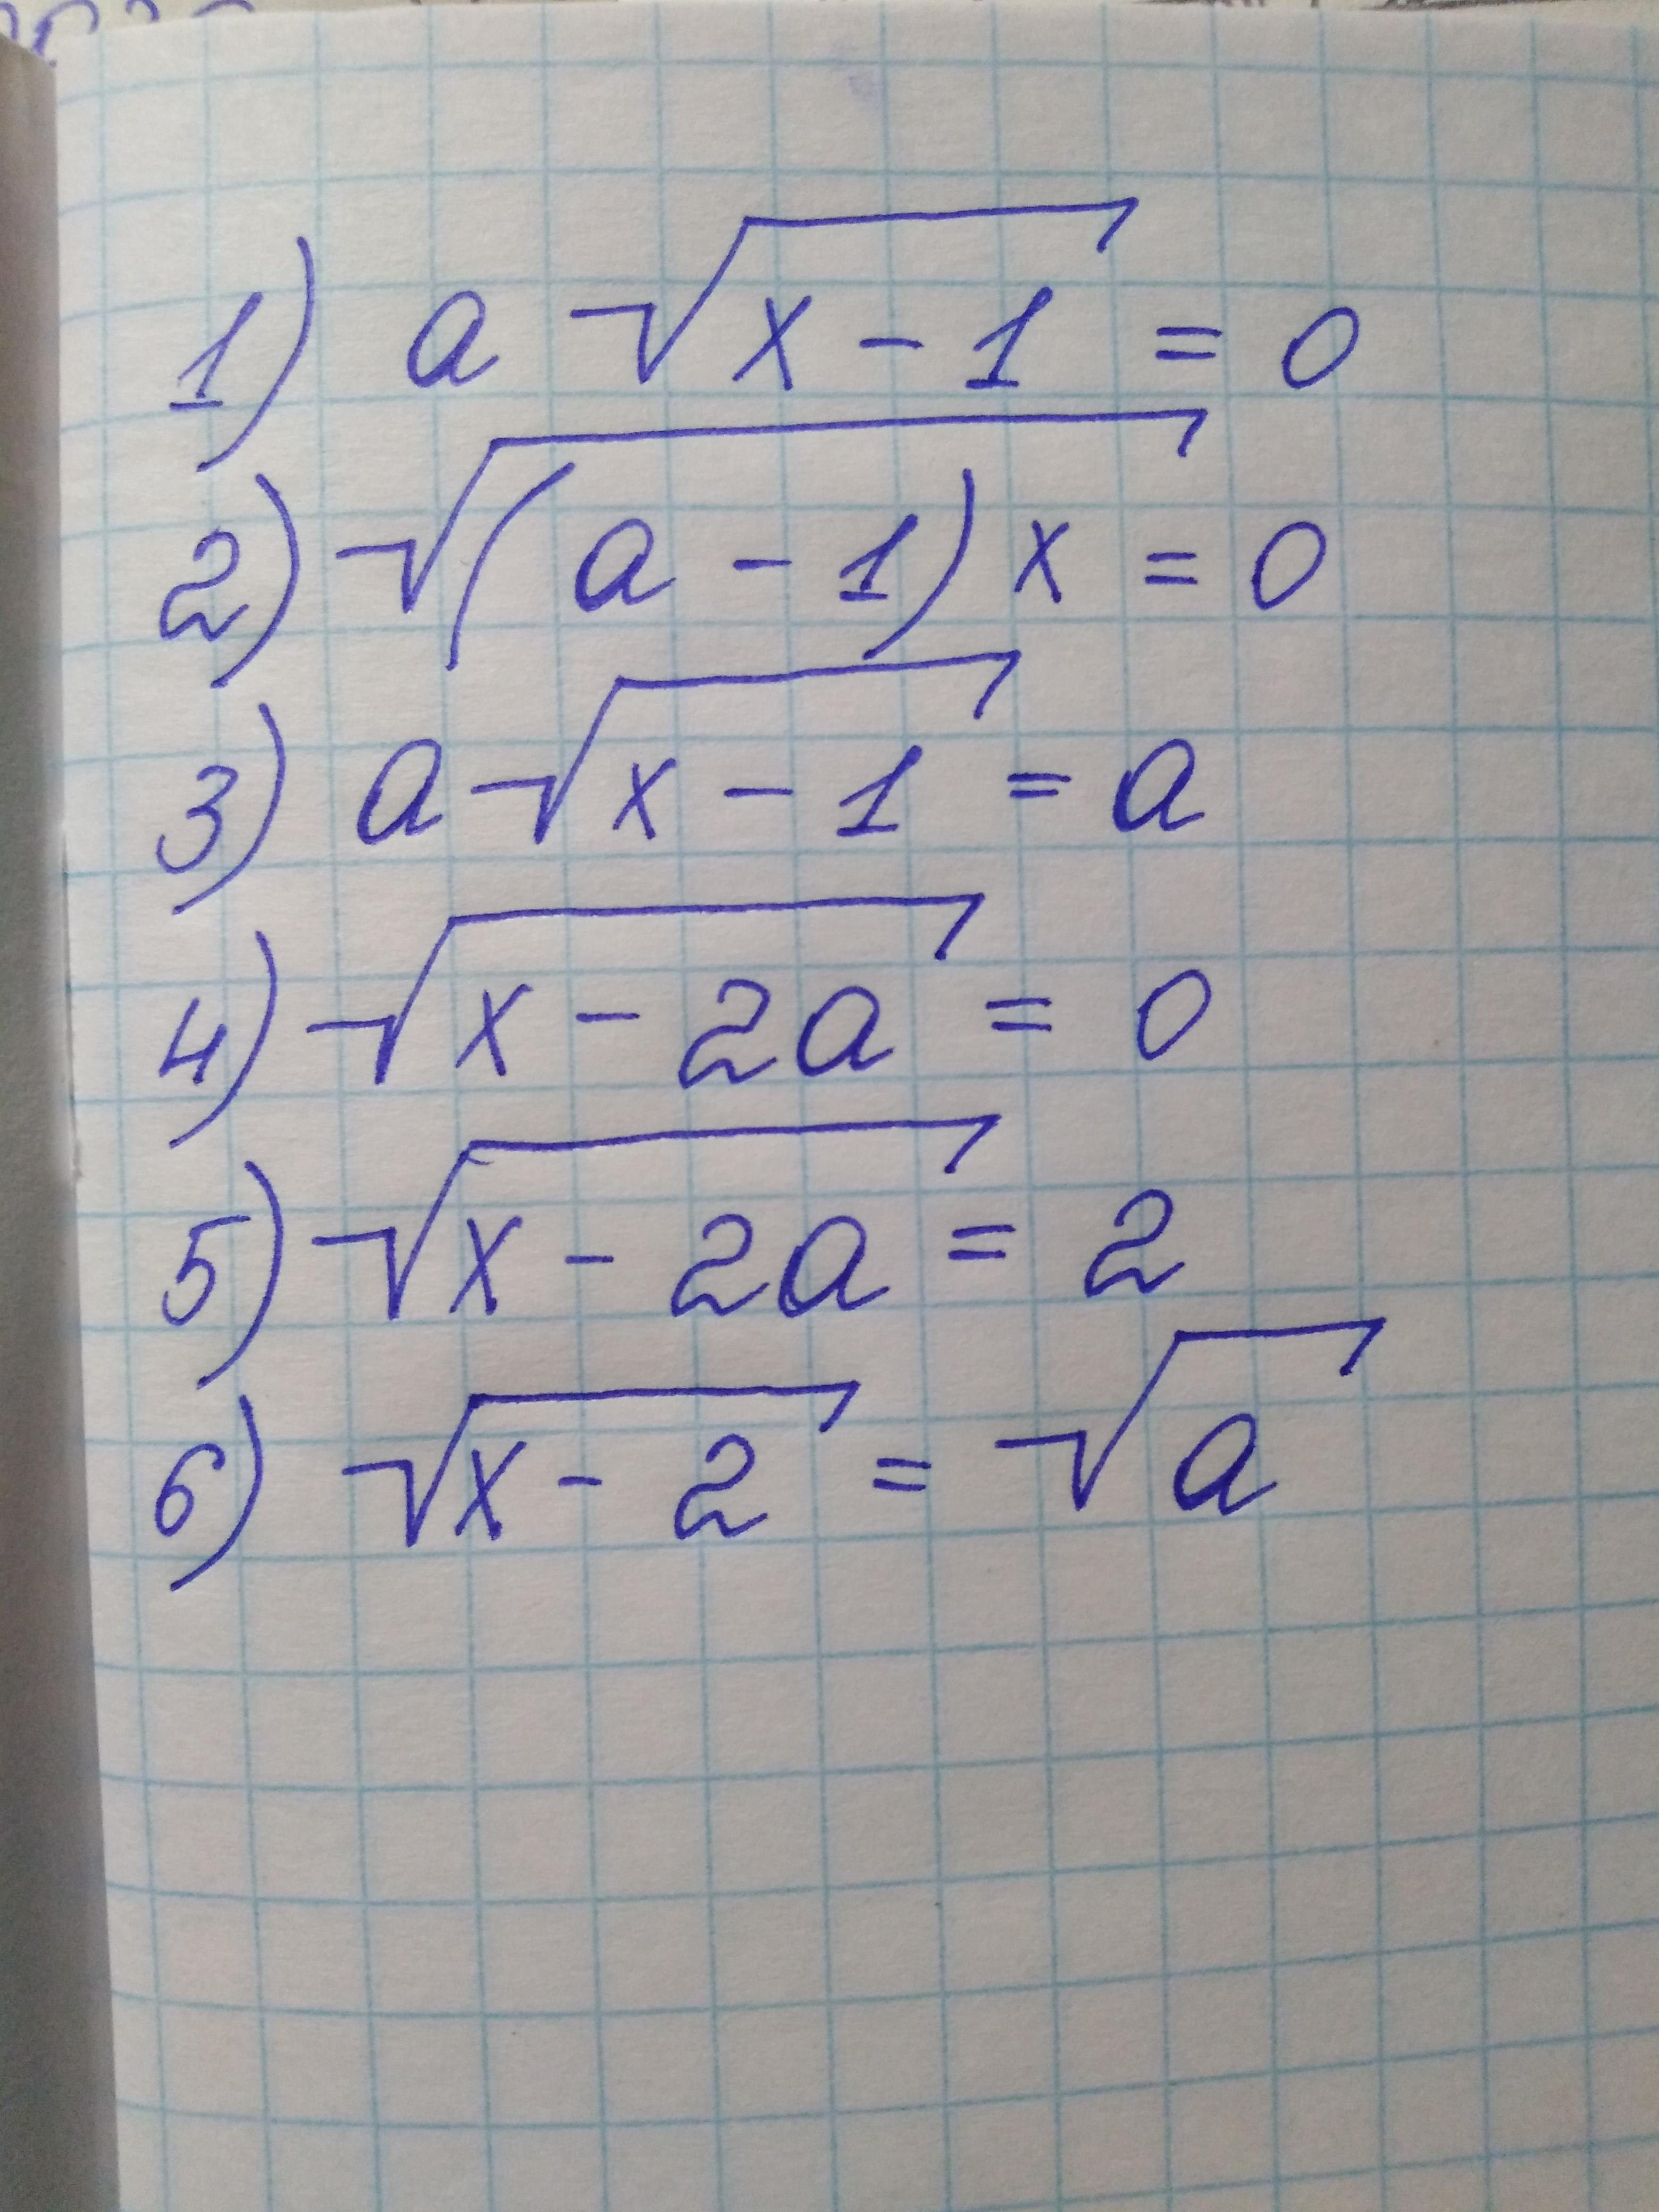 1) a √(x - 1) = 0
2) √((a - 1)x) = 0
3) a√(x - 1) = a
4) √(x - 2a) = 0
5) √(x - 2a) = 2
6) √(x - 2) = √a